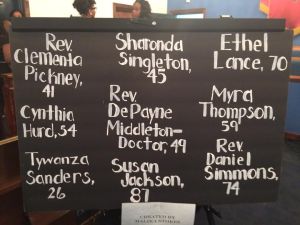 Rev.
Clementa
Pickney,
41
Sharonda
Singleton,
45
Ethel
Lance, 70
Cynthia
Hurd, 54
Rev.
DePayne
Middleton-
Doctor, 49
Myra
Thompson,
59
Tywanza
Sanders,
26
Susan
Jackson,
87
Rev.
Daniel
Simmons,
74
CREATED BY